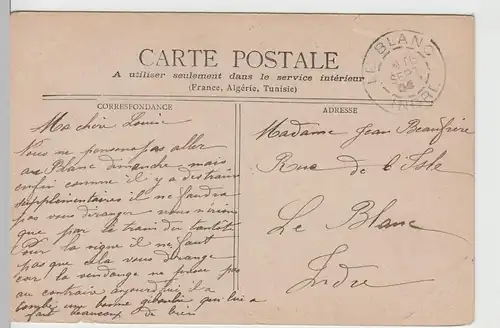 CARTE POSTALE
A utiliser seulement dans le service intérieur
(France, Algérie, Tunisie)
LE BLANC
SEPT
INDRE
CORRESPONDANCE
Ma chère Louise
Nous ne pensons pas aller
au Blanc dimanche mais
enfin comme il y a des trains
supplémentaires il ne faudra
pas vous déranger nous n'irons
que par le train du tantôt
Pour la vigne il ne faut
pas que cela vous dérange
car la vendange ne presse pas
au contraire aujourd'hui il a
tombé une bonne giboulée qui lui a
fait beaucoup de bien
ADRESSE
Madame Jean Beaufrère
Rue de l'Isle
Le Blanc
Indre